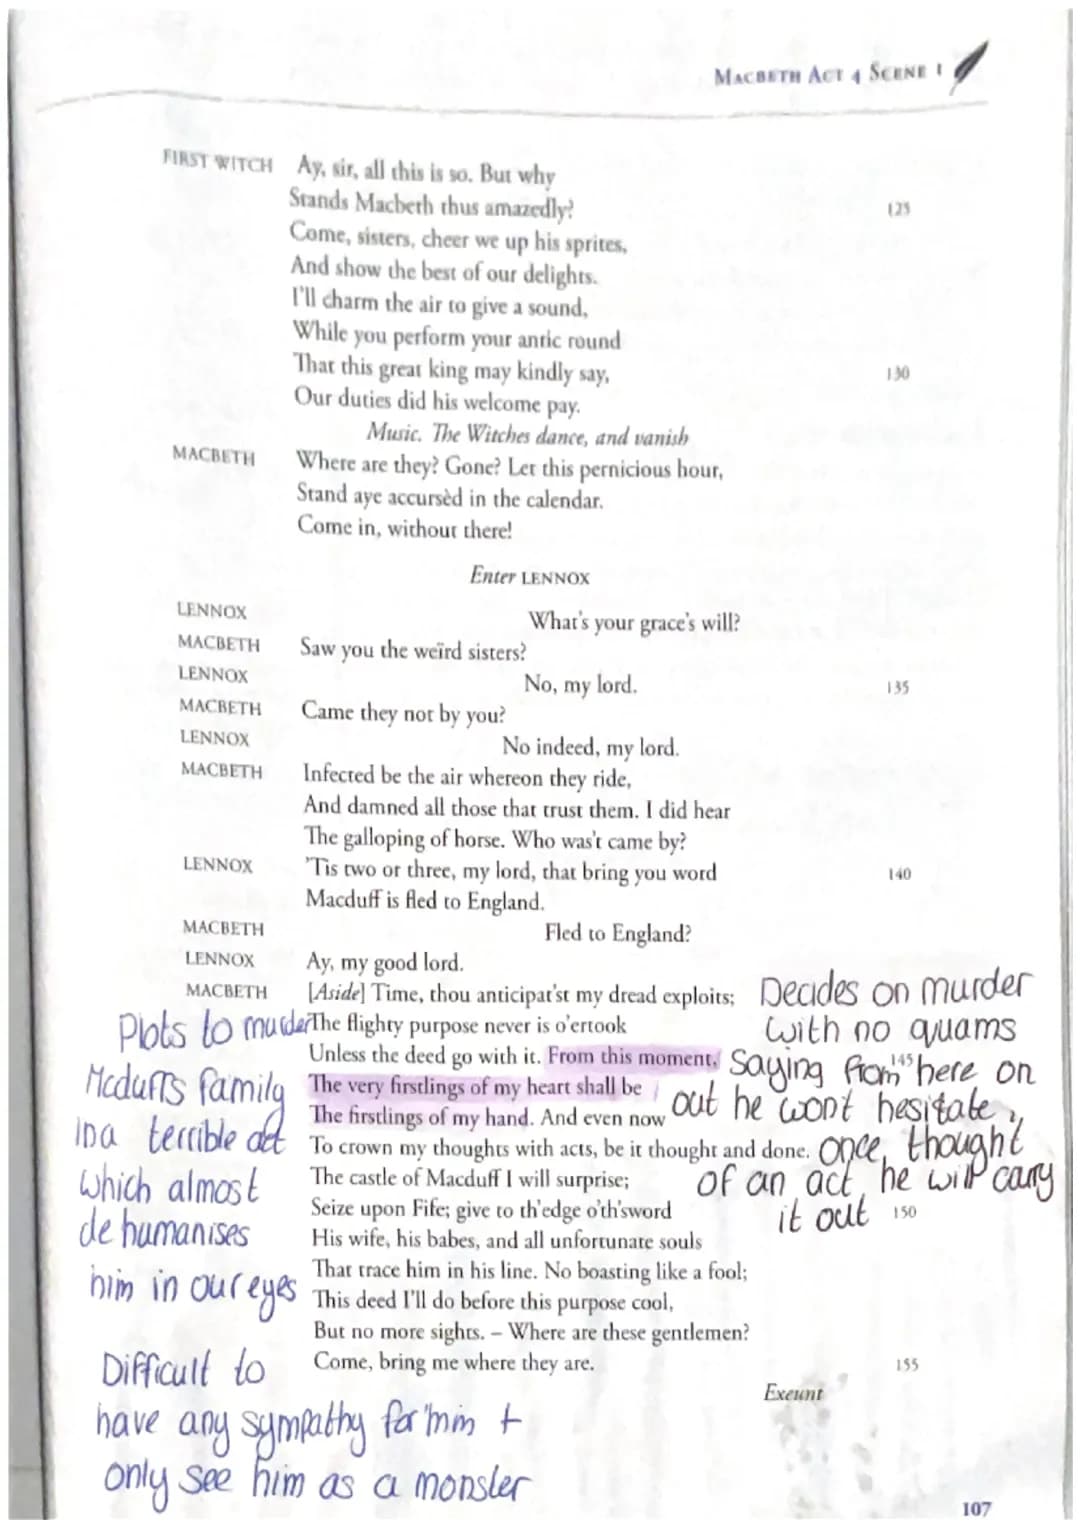 MACBETH ACT 4 SCENE 1
FIRST WITCH Ay, sir, all this is so. But why
Stands Macbeth thus amazedly? 125
Come, sisters, cheer we up his sprites,
And show the best of our delights.
I'll charm the air to give a sound,
While you perform your antic round
That this great king may kindly say, 130
Our duties did his welcome pay.
Music. The Witches dance, and vanish
MACBETH Where are they? Gone? Let this pernicious hour,
Stand aye accursèd in the calendar.
Come in, without there!
Enter LENNOX
LENNOX What's your grace's will?
MACBETH Saw you the weïrd sisters?
LENNOX No, my lord. 135
MACBETH Came they not by you?
LENNOX No indeed, my lord.
MACBETH Infected be the air whereon they ride,
And damned all those that trust them. I did hear
The galloping of horse. Who was't came by?
LENNOX 'Tis two or three, my lord, that bring you word 140
Macduff is fled to England.
MACBETH Fled to England?
LENNOX Ay, my good lord.
MACBETH [Aside] Time, thou anticipat'st my dread exploits;
The flighty purpose never is o'ertook
Unless the deed go with it. From this moment, 145
The very firstlings of my heart shall be
The firstlings of my hand. And even now
To crown my thoughts with acts, be it thought and done.
The castle of Macduff I will surprise;
Seize upon Fife; give to th'edge o'th'sword 150
His wife, his babes, and all unfortunate souls
That trace him in his line. No boasting like a fool;
This deed I'll do before this purpose cool,
But no more sights. – Where are these gentlemen?
Come, bring me where they are. 155
Exeunt
Decides on murder
with no quams
Saying from here on
out he wont hesitate,
once thought
of an act, he will cany
it out
Plots to murder
Mcduffs family
in a terrible act
which almost
dehumanises
him in our eyes
Difficult to
have any sympathy for him +
only see him as a monster
107